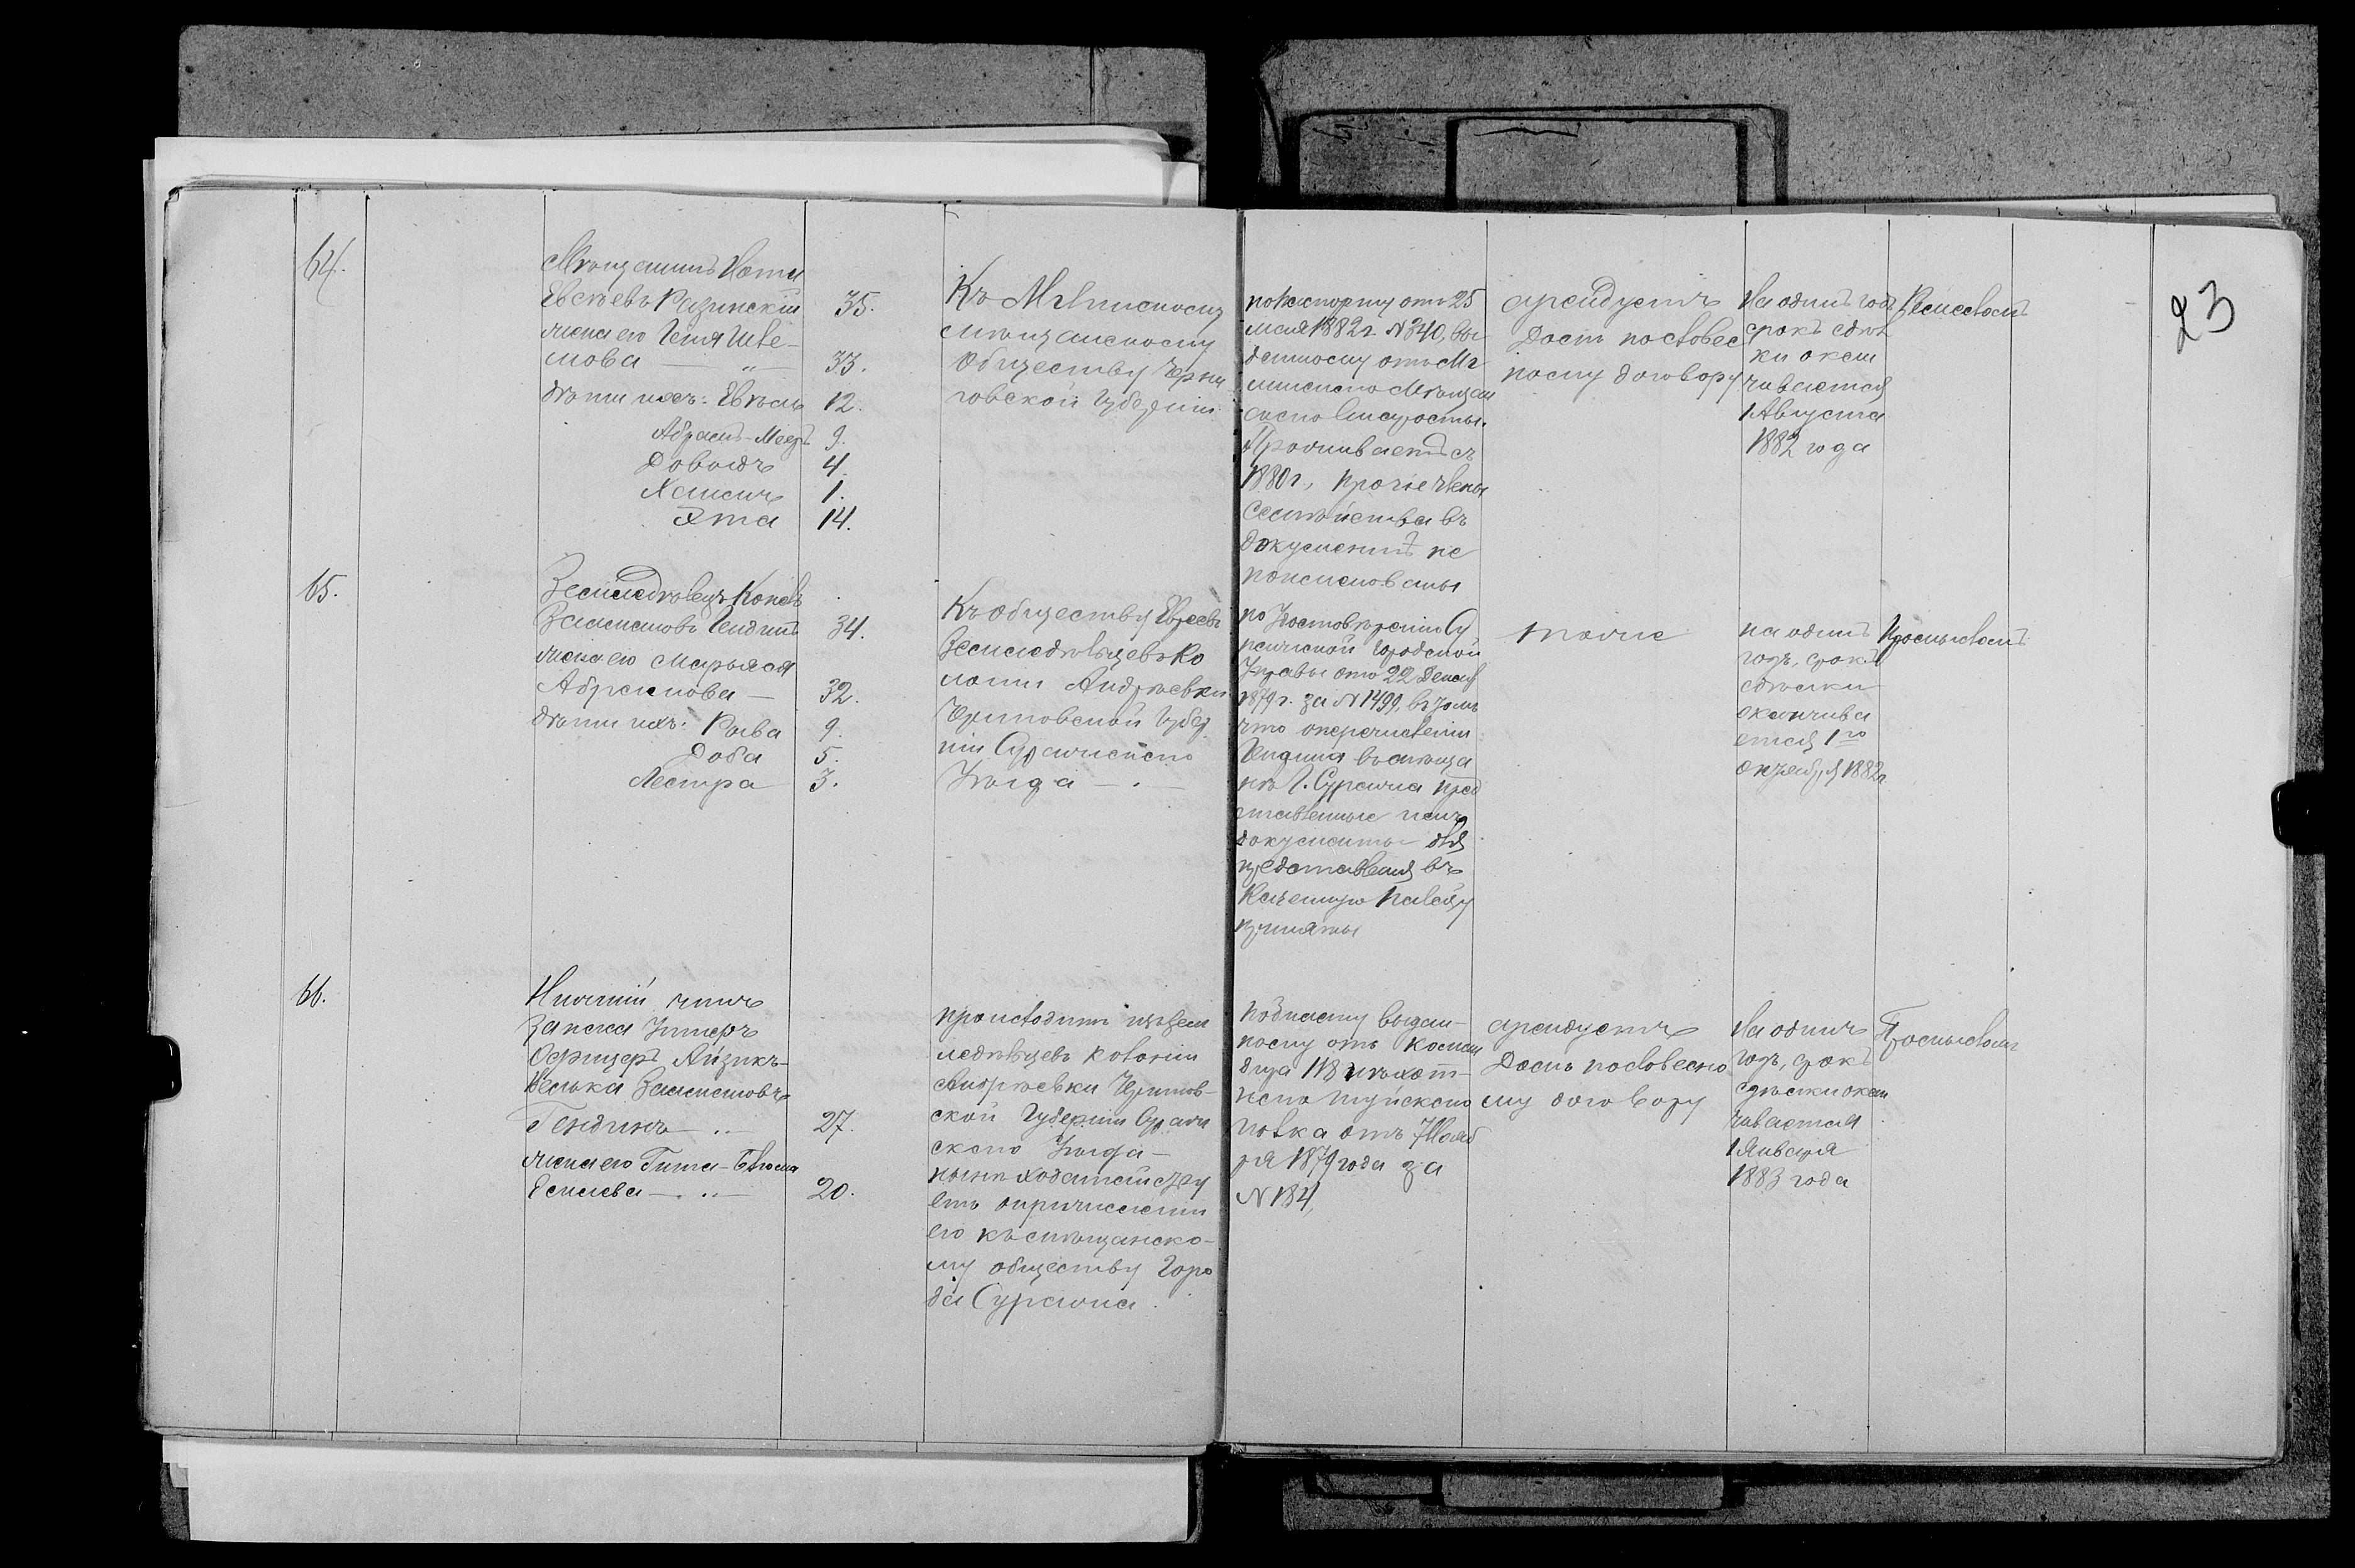 64.
Мѣщанинъ Нота
Евсѣевъ Разинскій 35.
жена его Геня Шле-
мова — „ — 33.
дѣти ихъ: Евсѣль 12.
Абрамъ-Меер 9.
Довидъ 4.
Хаимъ 1.
Эта 14.
Къ Мглинскому
мѣщанскому
Обществу Черни
говской Губерніи
по паспорту отъ 25
Мая 1882 г. № 340, вы
данному отъ Мг
линскаго Мѣщан
скаго Старосты.
Проживаетъ съ
1880 г., прочіе члены
семейства въ
документѣ не
поименованы
арендуетъ
Домъ по словес
ному договору
На одинъ годъ
срокъ сдѣл
ки окан
чивается
1 Августа
1882 года
Ремесломъ
23
65.
Земледѣлецъ Копель
Залмановъ Гендинъ 34.
жена его Марьяся
Абрамова — 32.
дѣти ихъ: Рыва 9.
Доба 5.
Лестра 3.
Къ обществу Евреевъ
Земледѣльцевъ Ко
лоніи Андреевки
Черниговской Губер
ніи Суражскаго
Уѣзда — . —
по Удостовѣренію Су
ражской Городской
Управы отъ 22 Декаб
1879 г. за № 1499, въ томъ
что о перечисленіи
Гендина въ мѣща
не г. Суража пред
ставленные имъ
документы для
представленія въ
Казенную Палату
приняты
тоже
на одинъ
годъ, срокъ
сдѣлки
оканчива
ется 1го
октября 1882 г.
Промысломъ
66.
Нижній чинъ
запаса Унтеръ
Офицеръ Айзикъ-
Залмановъ
Гендинъ — „ — 27.
жена его Гита-Блюма
— „ — 20.
происходитъ изъ зем
ледѣльцевъ колоніи
Андреевки Чернигов-
ской Губерніи Сураж
скаго Уѣзда —
нынѣ ходатайству
етъ о причисленіи
его къ мѣщанско-
му обществу Горо
да Суража.
по билету выдан-
ному отъ Коман
дира 118 пѣхот-
наго Шуйскаго
полка отъ 7 Нояб
ря 1879 года за
№ 184,
арендуетъ
Домъ по словесно
му договору
На одинъ
годъ, срокъ
сдѣлки окан
чивается
1 Января
1883 года
Промысломъ